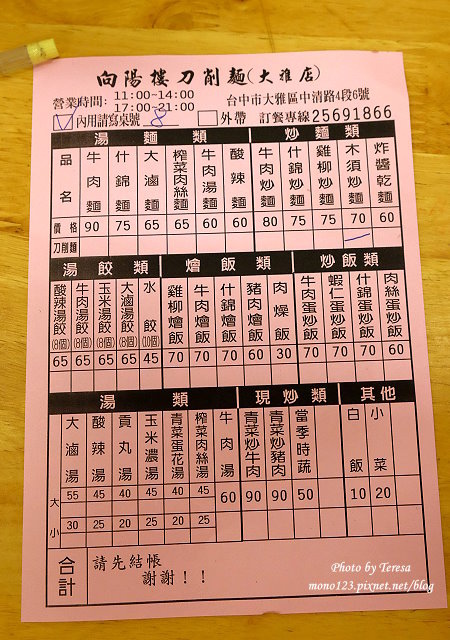 向陽樓刀削麵(大雅店)
營業時間: 11:00~14:00
17:00~21:00
台中市大雅區中清路4段6號
內用請寫桌號 8 外帶 訂餐專線25691866
湯麵類 炒麵類
品名 牛肉麵 什錦麵 大滷麵 榨菜肉絲麵 牛肉湯麵 酸辣麵 牛肉炒麵 什錦炒麵 雞柳炒麵 木須炒麵 炸醬乾麵
價格 90 75 65 65 60 60 80 75 75 70 60
刀削麵
湯餃類 燴飯類 炒飯類
酸辣湯餃(8個) 牛肉湯餃(8個) 玉米湯餃(8個) 大滷湯餃(8個) 水餃(10個) 雞柳燴飯 牛肉燴飯 什錦燴飯 豬肉燴飯 肉燥飯 牛肉蛋炒飯 蝦仁蛋炒飯 什錦蛋炒飯 肉絲蛋炒飯
65 65 65 65 45 70 70 70 60 30 70 70 70 60
湯類 現炒類 其他
大滷湯 酸辣湯 貢丸湯 玉米濃湯 青菜蛋花湯 榨菜肉絲湯 牛肉湯 青菜炒牛肉 青菜炒豬肉 當季時蔬 白飯 小菜
大 55 45 40 45 45 45 60 90 90 50 10 20
小 30 25 20 25 20 25
合計 請先結帳
謝謝!!
Photo by Teresa
mono123.pixnet.net/blog